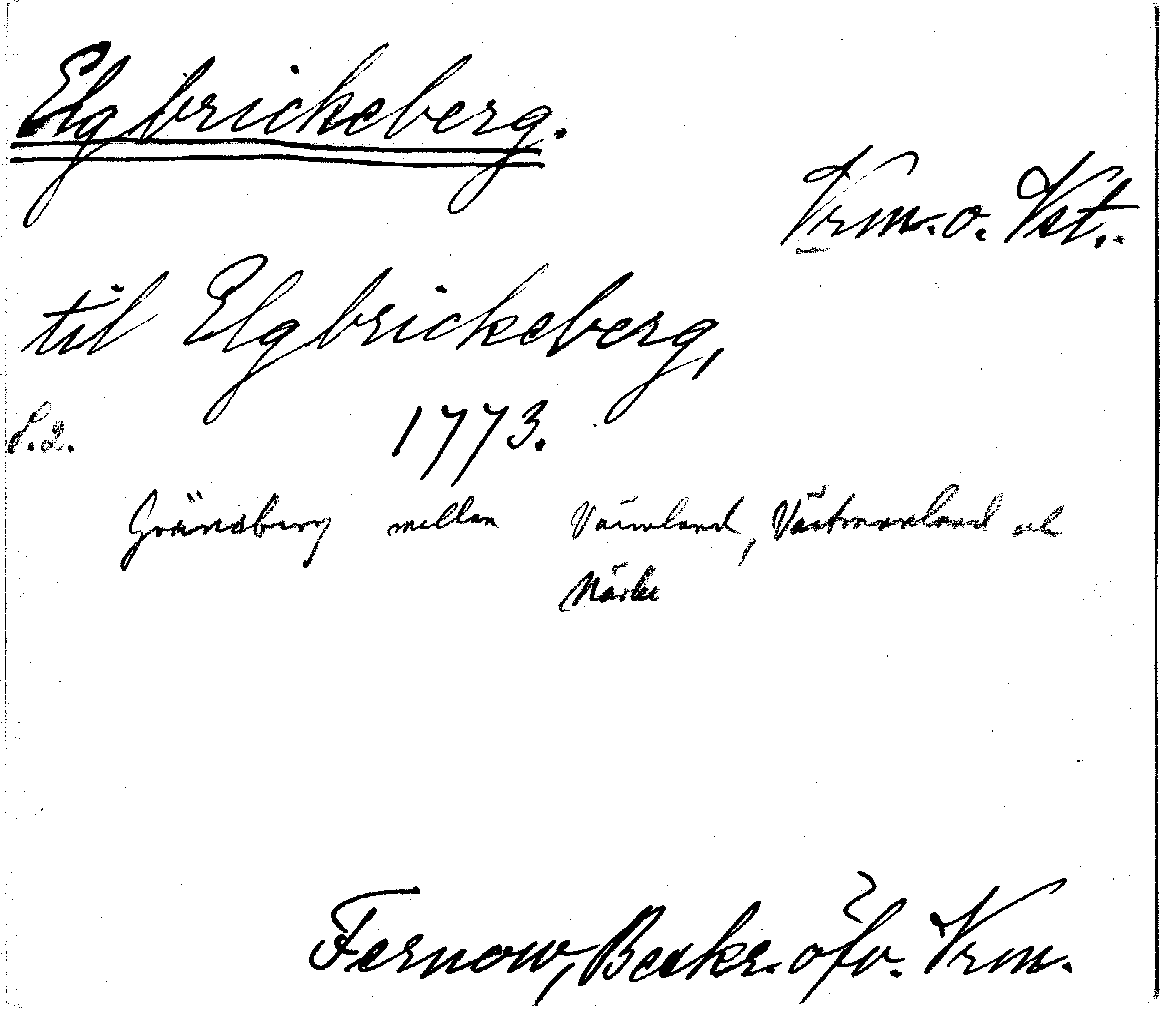 Elgbrickeberg.
Vrm. o. Vst.
til Elgbrickeberg,
S. 2. 1773.
Gränsberg mellan Värmland, Västmanland och
Närke
Fernow, Beskr. öfv. Vrm.